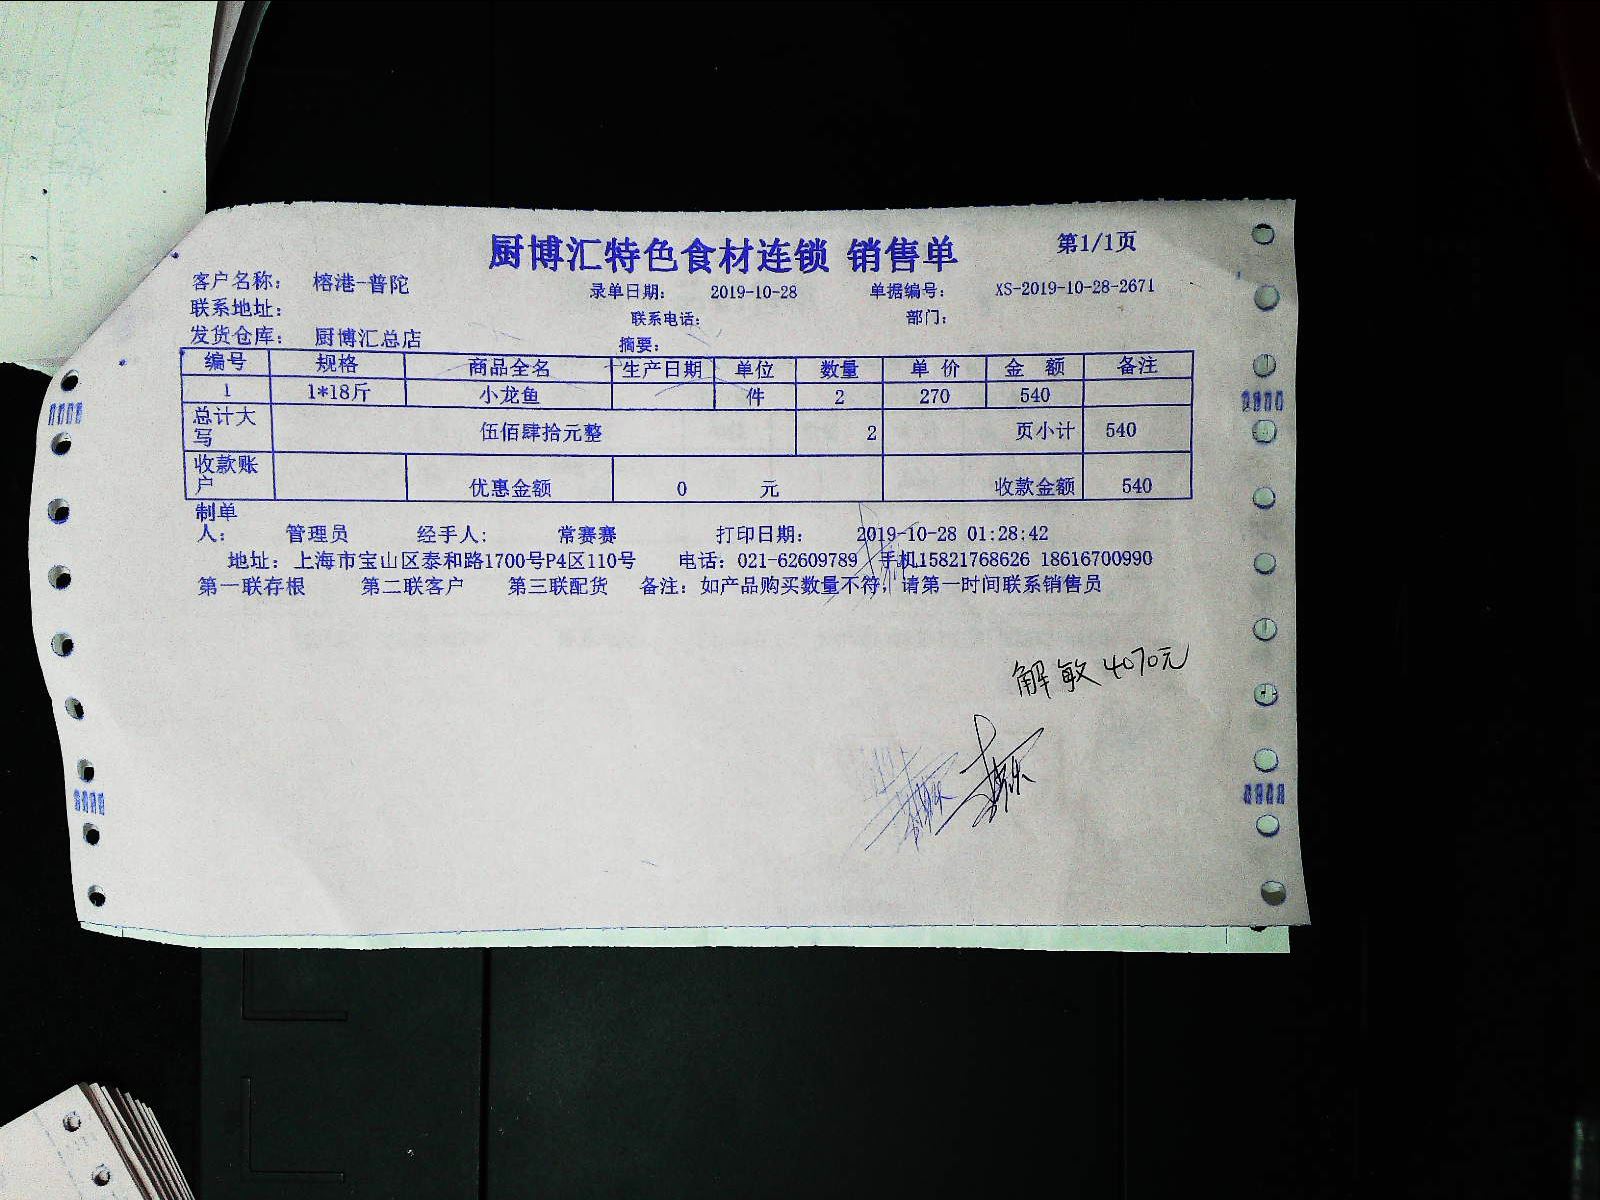 厨博汇特色食材连锁 销售单 第1/1页
客户名称： 榕港-普陀 录单日期： 2019-10-28 单据编号： XS-2019-10-28-2671
联系地址： 联系电话： 部门：
发货仓库： 厨博汇总店 摘要：
编号 规格 商品全名 生产日期 单位 数量 单 价 金 额 备注
1 1*18斤 小龙鱼 件 2 270 540
总计大写 伍佰肆拾元整 2 页小计 540
收款账户 优惠金额 0 元 收款金额 540
制单人： 管理员 经手人： 常赛赛 打印日期： 2019-10-28 01:28:42
地址：上海市宝山区泰和路1700号P4区110号 电话：021-62609789 手机15821768626 18616700990
第一联存根 第二联客户 第三联配货 备注：如产品购买数量不符，请第一时间联系销售员
解敏 4070元